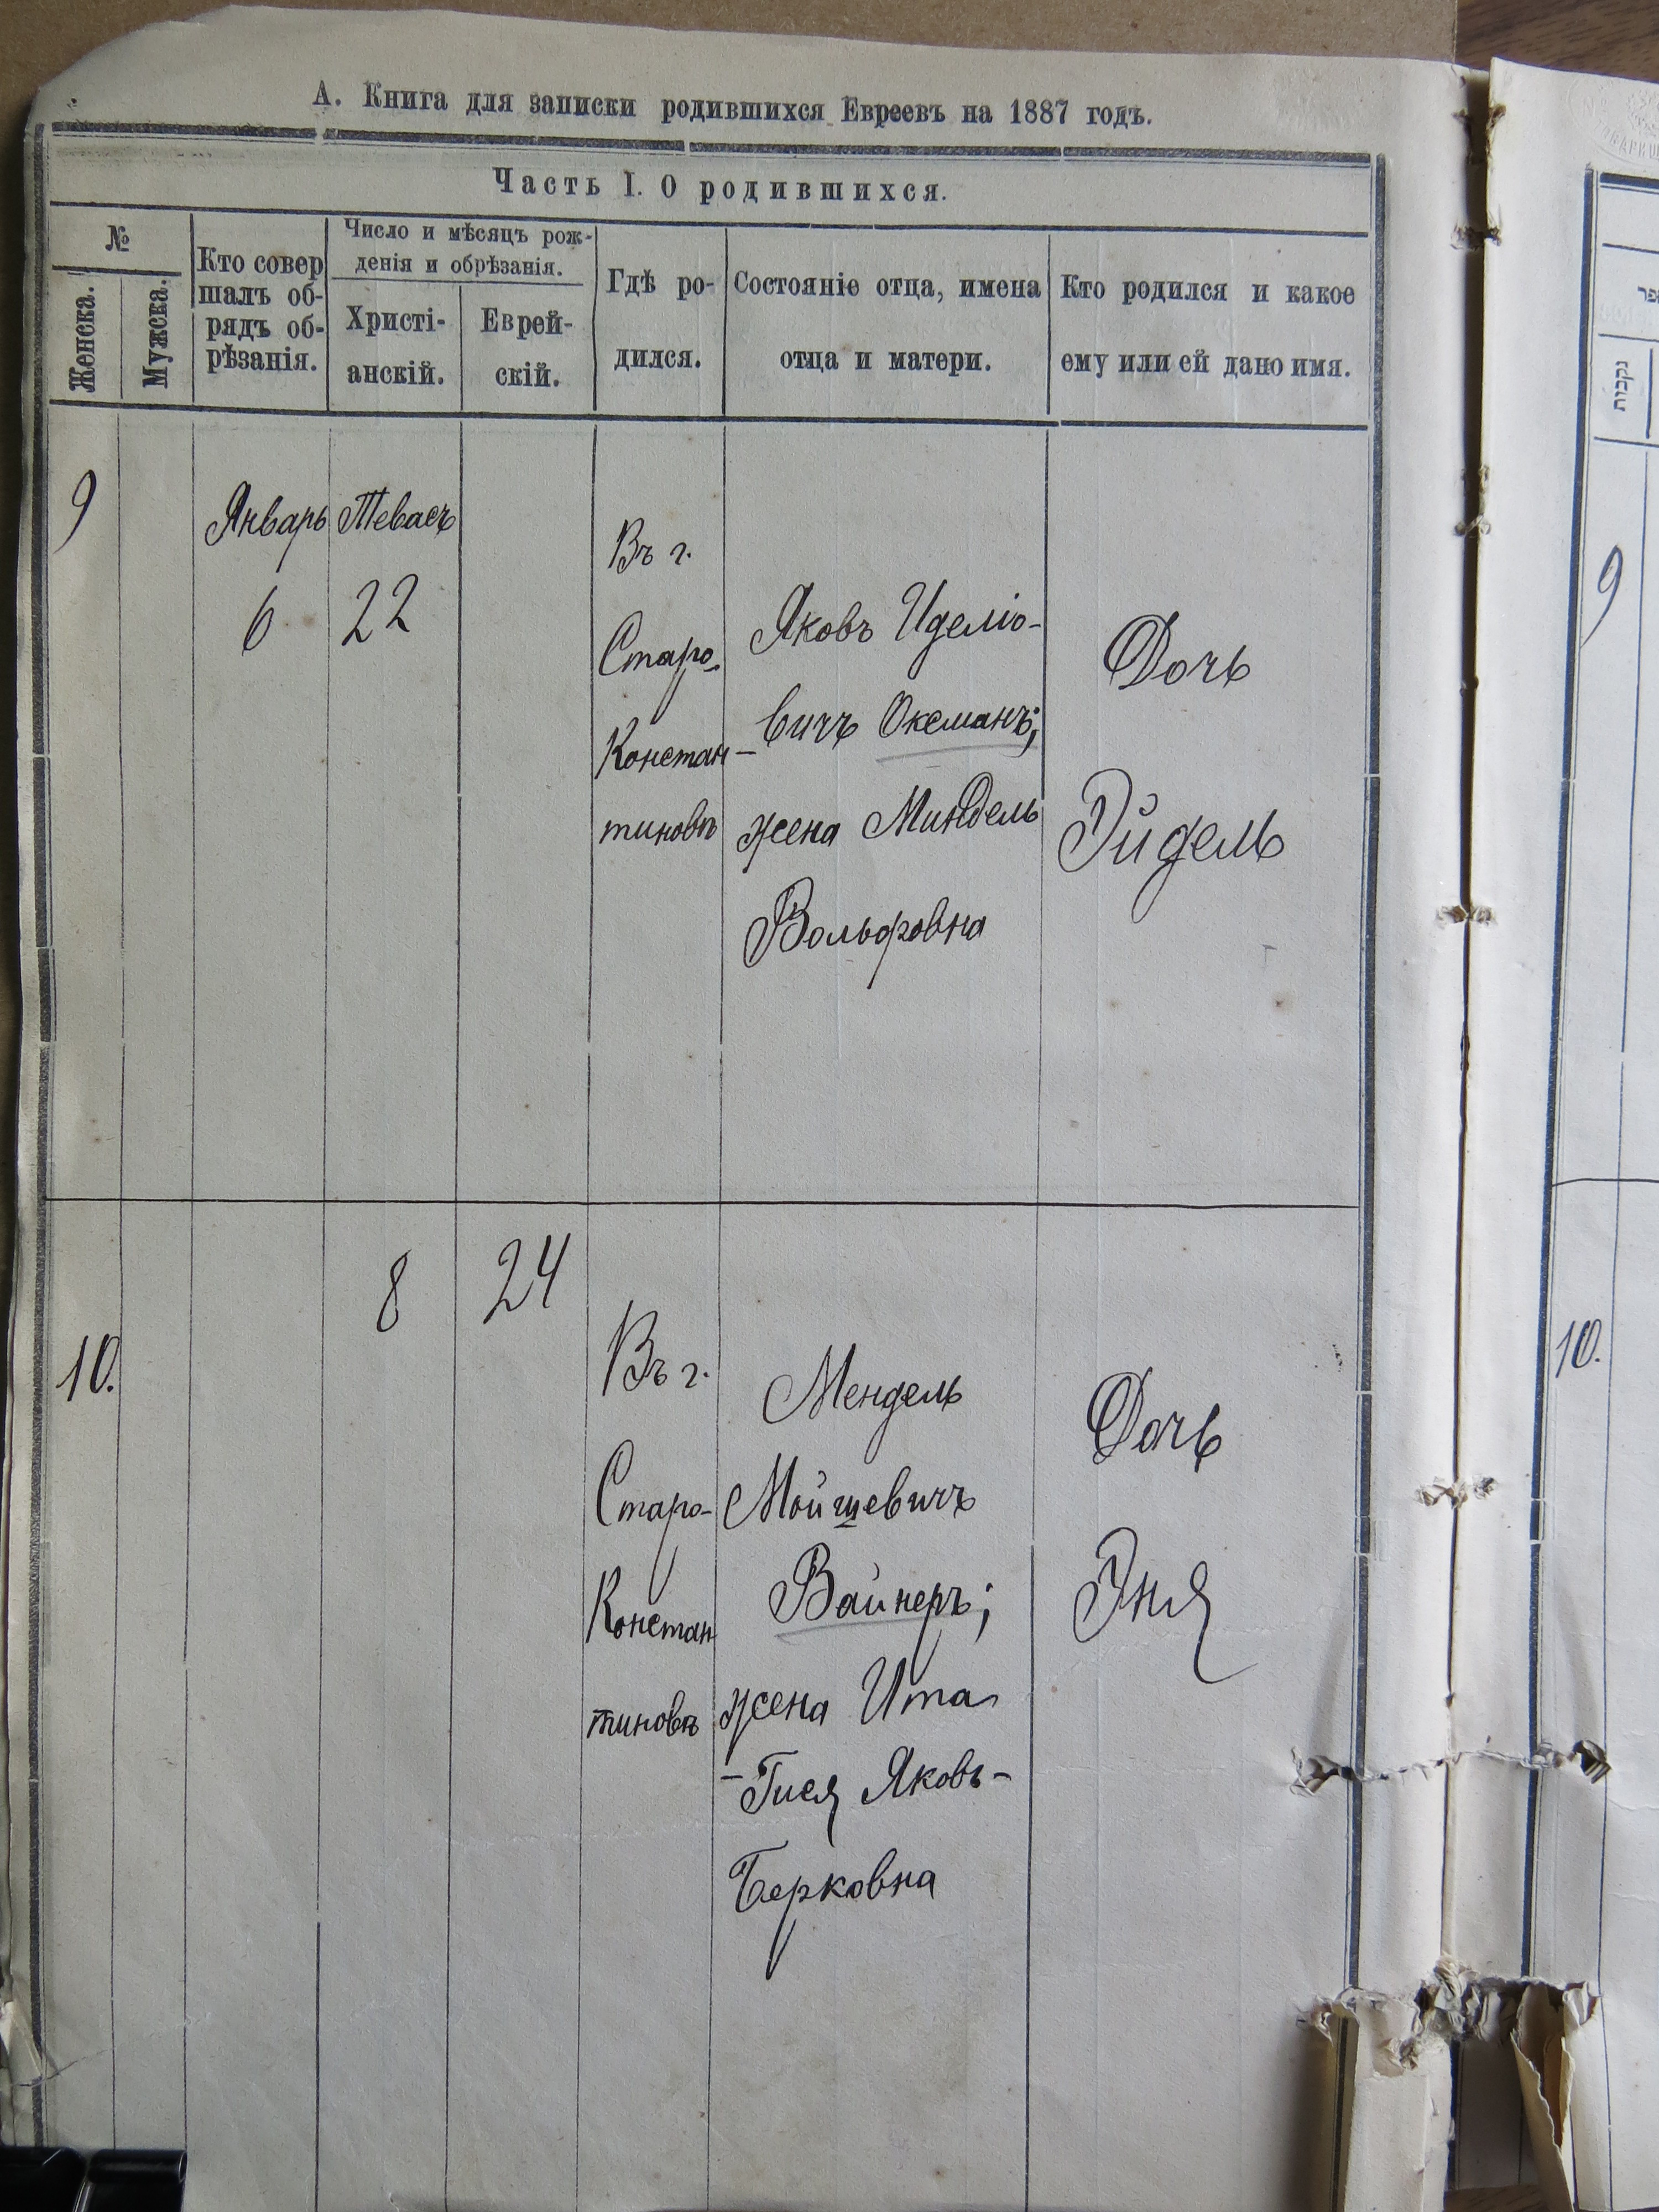 А. Книга для записки родившихся Евреевъ на 1887 годъ.
Часть I. О родившихся.
№
Женска.
Мужска.
Кто совер
шалъ об-
рядъ об-
рѣзанія.
Число и мѣсяцъ рож-
денія и обрѣзанія.
Христі-
анскій.
Еврей-
скій.
Гдѣ ро-
дился.
Состояніе отца, имена
отца и матери.
Кто родился и какое
ему или ей дано имя.
9
Январь
6
Тевасъ
22
Въ г.
Старо-
Констан-
тиновѣ
Яковъ Иделіо-
вичъ Оксманъ;
жена Миндель
Вольфовна
Дочь
Эйдель
10.
8
24
Въ г.
Старо-
Констан
тиновѣ
Мендель
Мойшевичъ
Вайнеръ;
жена Ита
-Гися Яковъ-
Берковна
Дочь
Эня
נקבות
9
10.